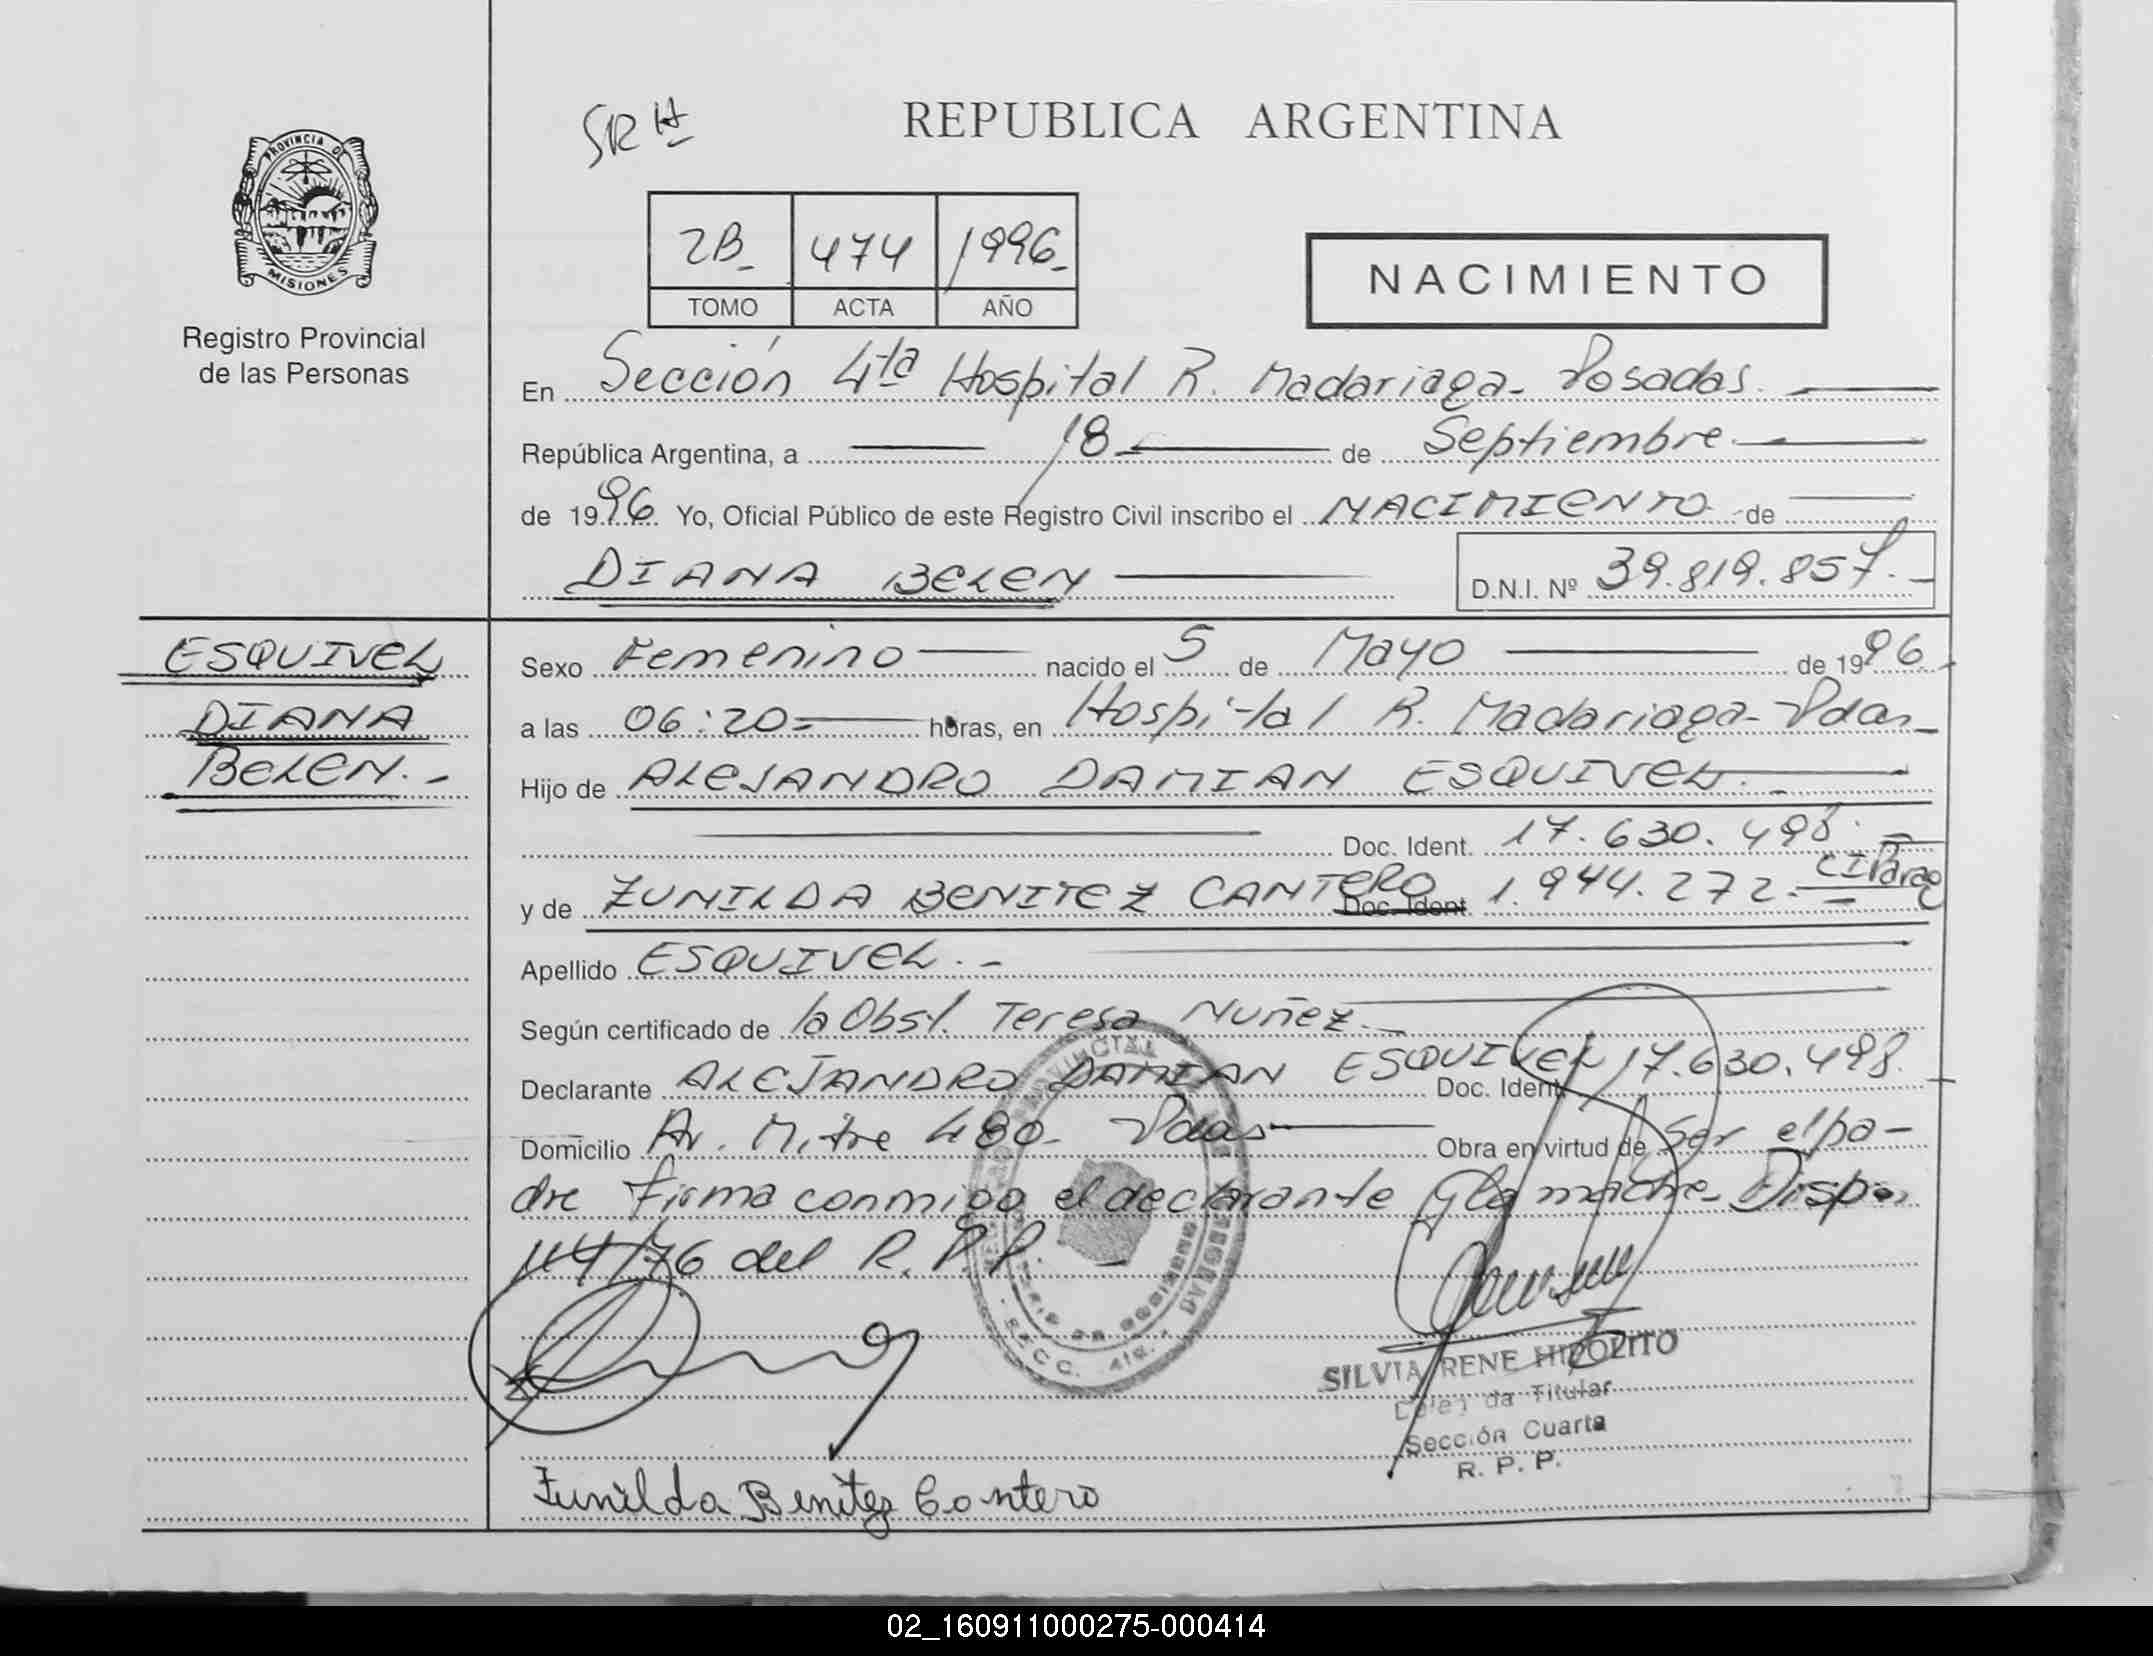 SR H
REPUBLICA ARGENTINA
PROVINCIA DE
MISIONES
Registro Provincial
de las Personas
2B- 474 1996-
TOMO ACTA AÑO
NACIMIENTO
En Sección 4ta Hospital R. Madariaga- Posadas.
República Argentina, a 18 de Septiembre
de 1996 Yo, Oficial Público de este Registro Civil inscribo el NACIMIENTO de
DIANA BELEN D.N.I. Nº 39.819.857.-
ESQUIVEL
DIANA
BELEN.-
Sexo Femenino nacido el 5 de Mayo de 1996.
a las 06:20= horas, en Hospital R. Madariaga- Pdas-
Hijo de ALEJANDRO DAMIAN ESQUIVEL.-
Doc. Ident. 17.630.498.-
y de ZUNILDA BENITEZ CANTERO Doc. Ident 1.944.272.- CI Parag
Apellido ESQUIVEL.-
Según certificado de la Obst. Teresa Nuñez.-
Declarante ALEJANDRO DAMIAN ESQUIVEL Doc. Ident. 17.630.498.
Domicilio Av. Mitre 480- Pdas Obra en virtud de Ser el pa-
dre firma conmigo el declarante y la madre- Dispos.
114/76 del R.P.P. -
SECC. 4ta.
SILVIA RENE HIPOLITO
Delegada Titular
Sección Cuarta
R. P. P.
Zunilda Benitez Cantero
02_160911000275-000414